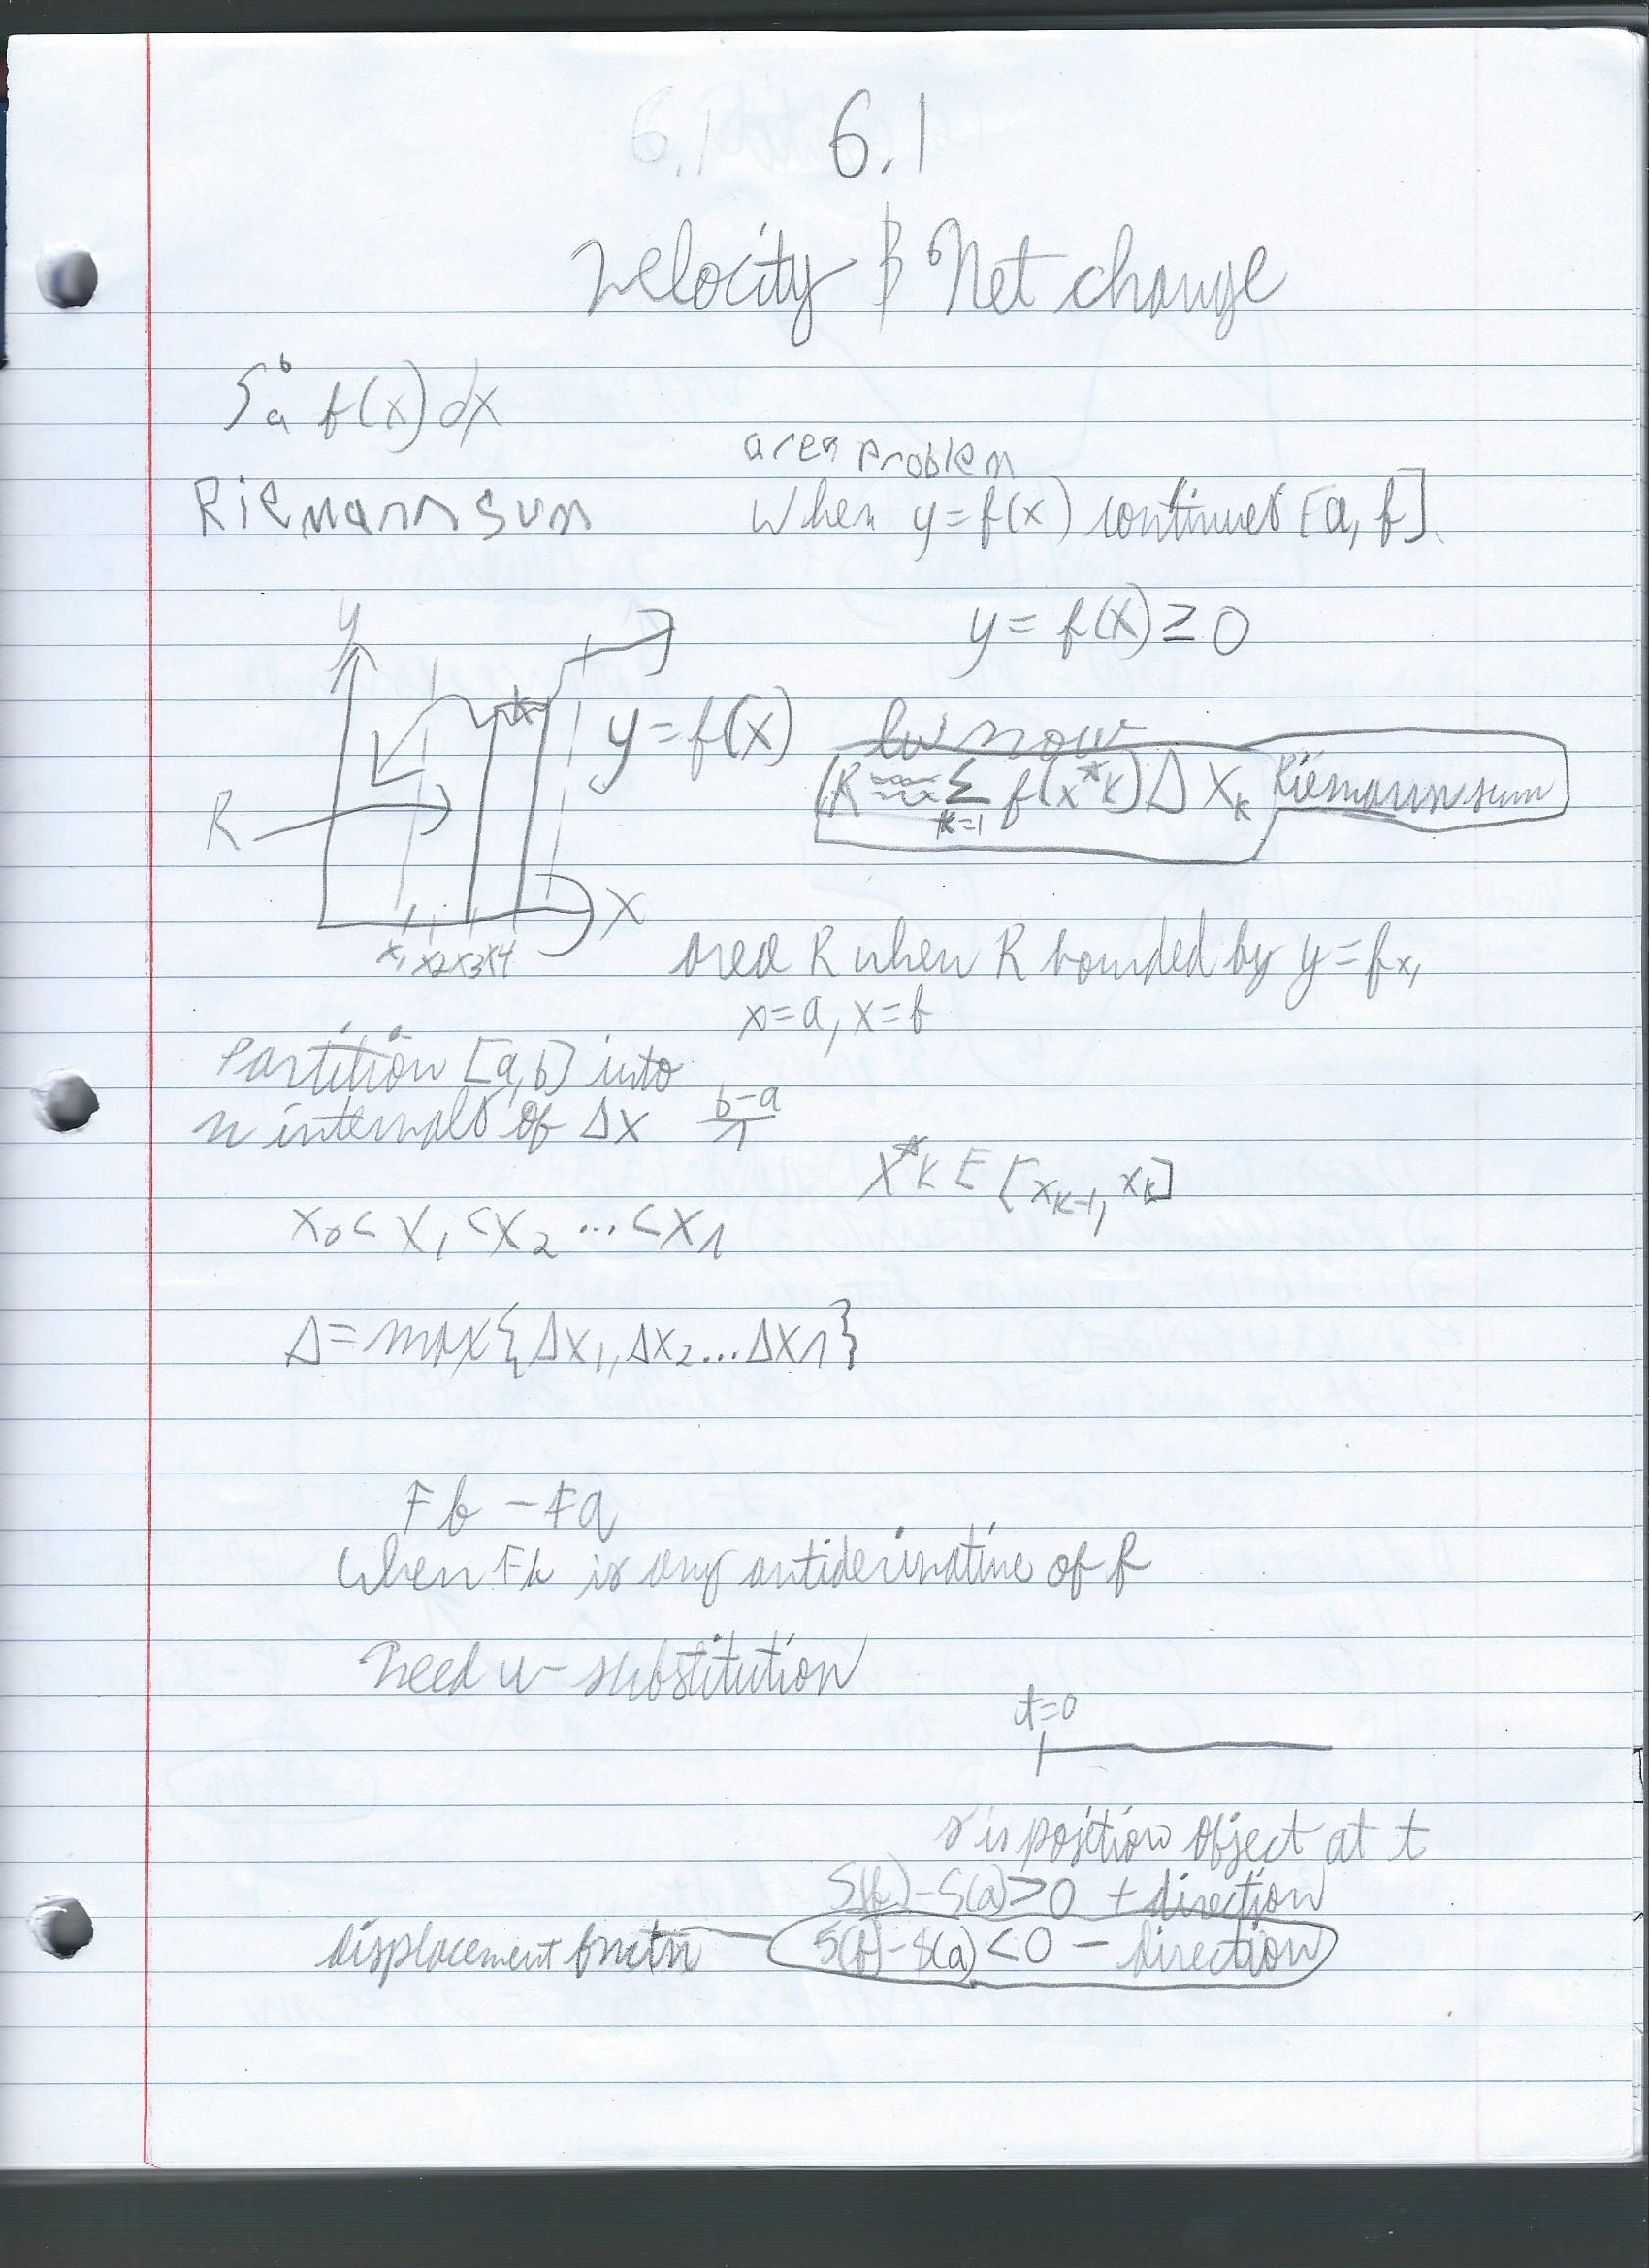 6.1 6.1
Velocity & Net change
∫ₐᵇ f(x)dx
area problem
Riemann sum When y=f(x) continues [a, b].
y = f(x) ≥ 0
y
y=f(x)
R ≈ Σ k=1 f(x*k) Δ Xk Riemann sum
R
X
x1 x2 x3 x4
area R when R bounded by y=fx,
x=a, x=b
Partition [a,b] into
n intervals of Δx b-a/1
X*k E [xk-1, xk]
x0 < x1 < x2 ... < x1
Δ = max{Δx1, Δx2...Δx1}
Fb - Fa
when Fb is any antiderivative of f
need u-substitution
t=0
s is position object at t
S(b)-S(a)>0 + direction
displacement functn S(b)-S(a)<0 - direction